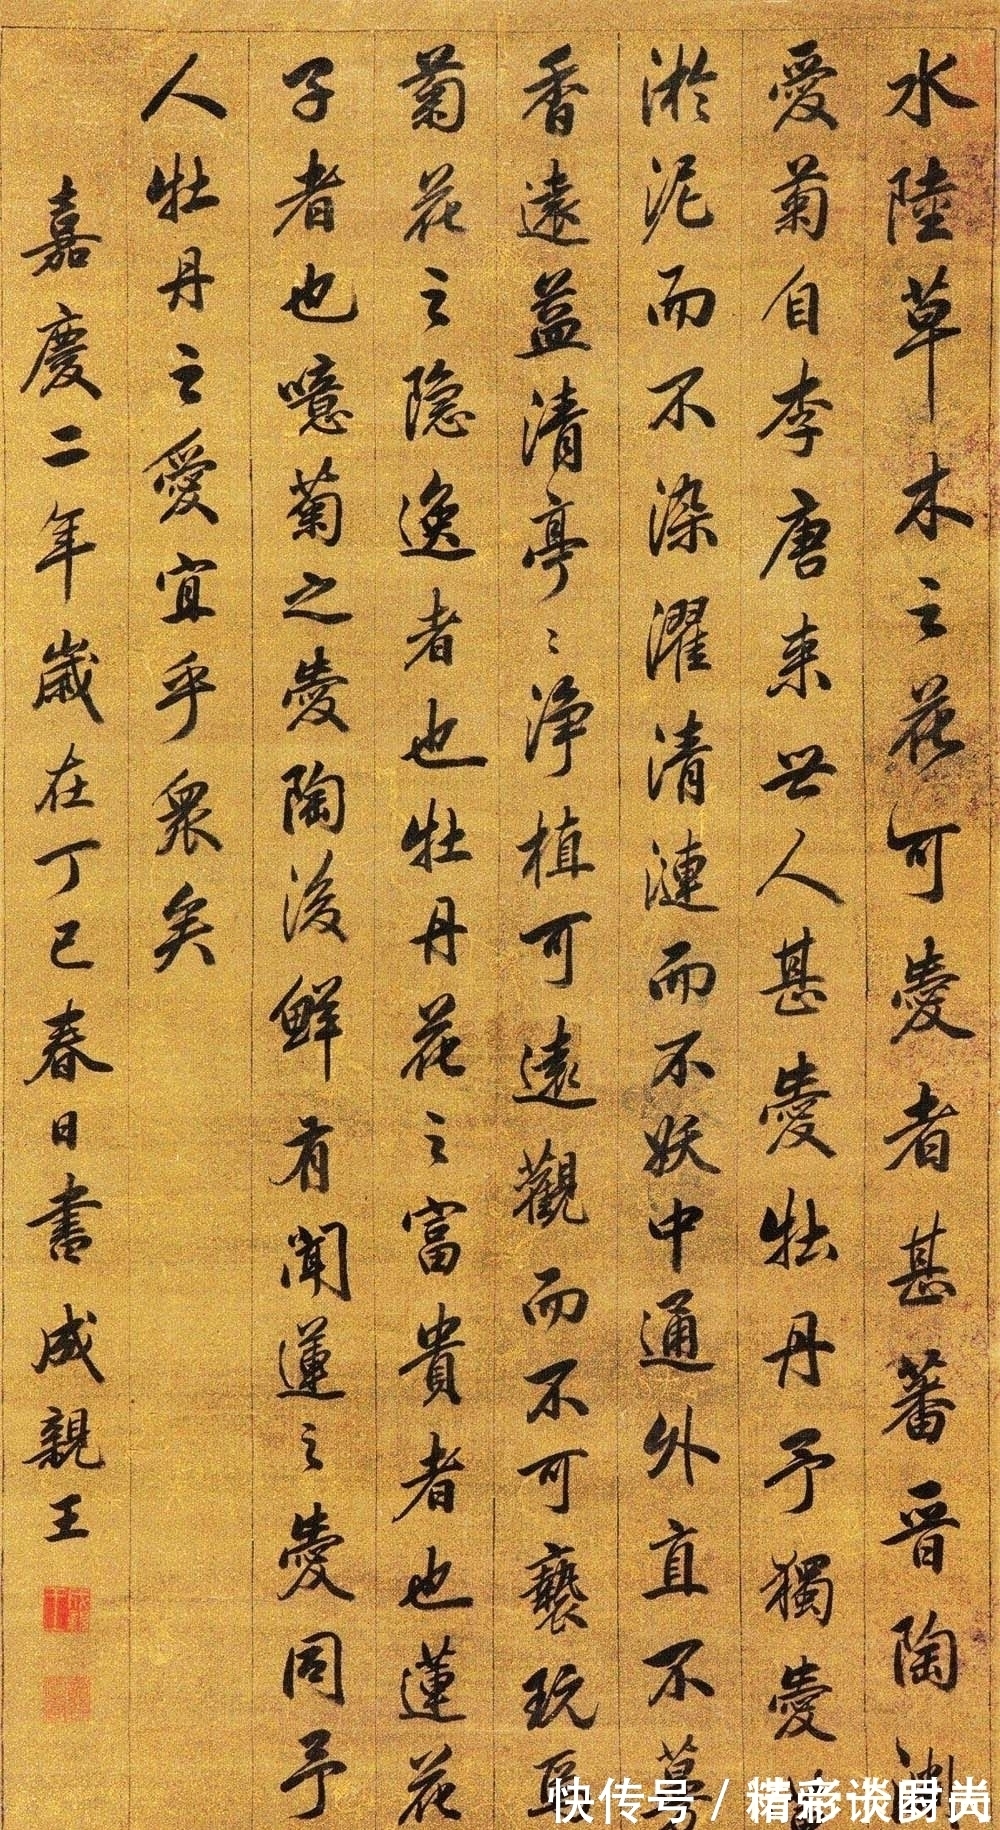 水陸草木之花可愛者甚蕃晋陶淵
愛菊自李唐来世人甚愛牡丹予獨愛
淤泥而不染濯清漣而不妖中通外直不蔓
香遠益清亭〻净植可遠觀而不可褻玩耳
菊花之隐逸者也牡丹花之富貴者也蓮花
子者也噫菊之愛陶後鮮有聞蓮之愛同予
人牡丹之愛宜乎衆矣
嘉慶二年歲在丁巳春日書成親王
快传号 /